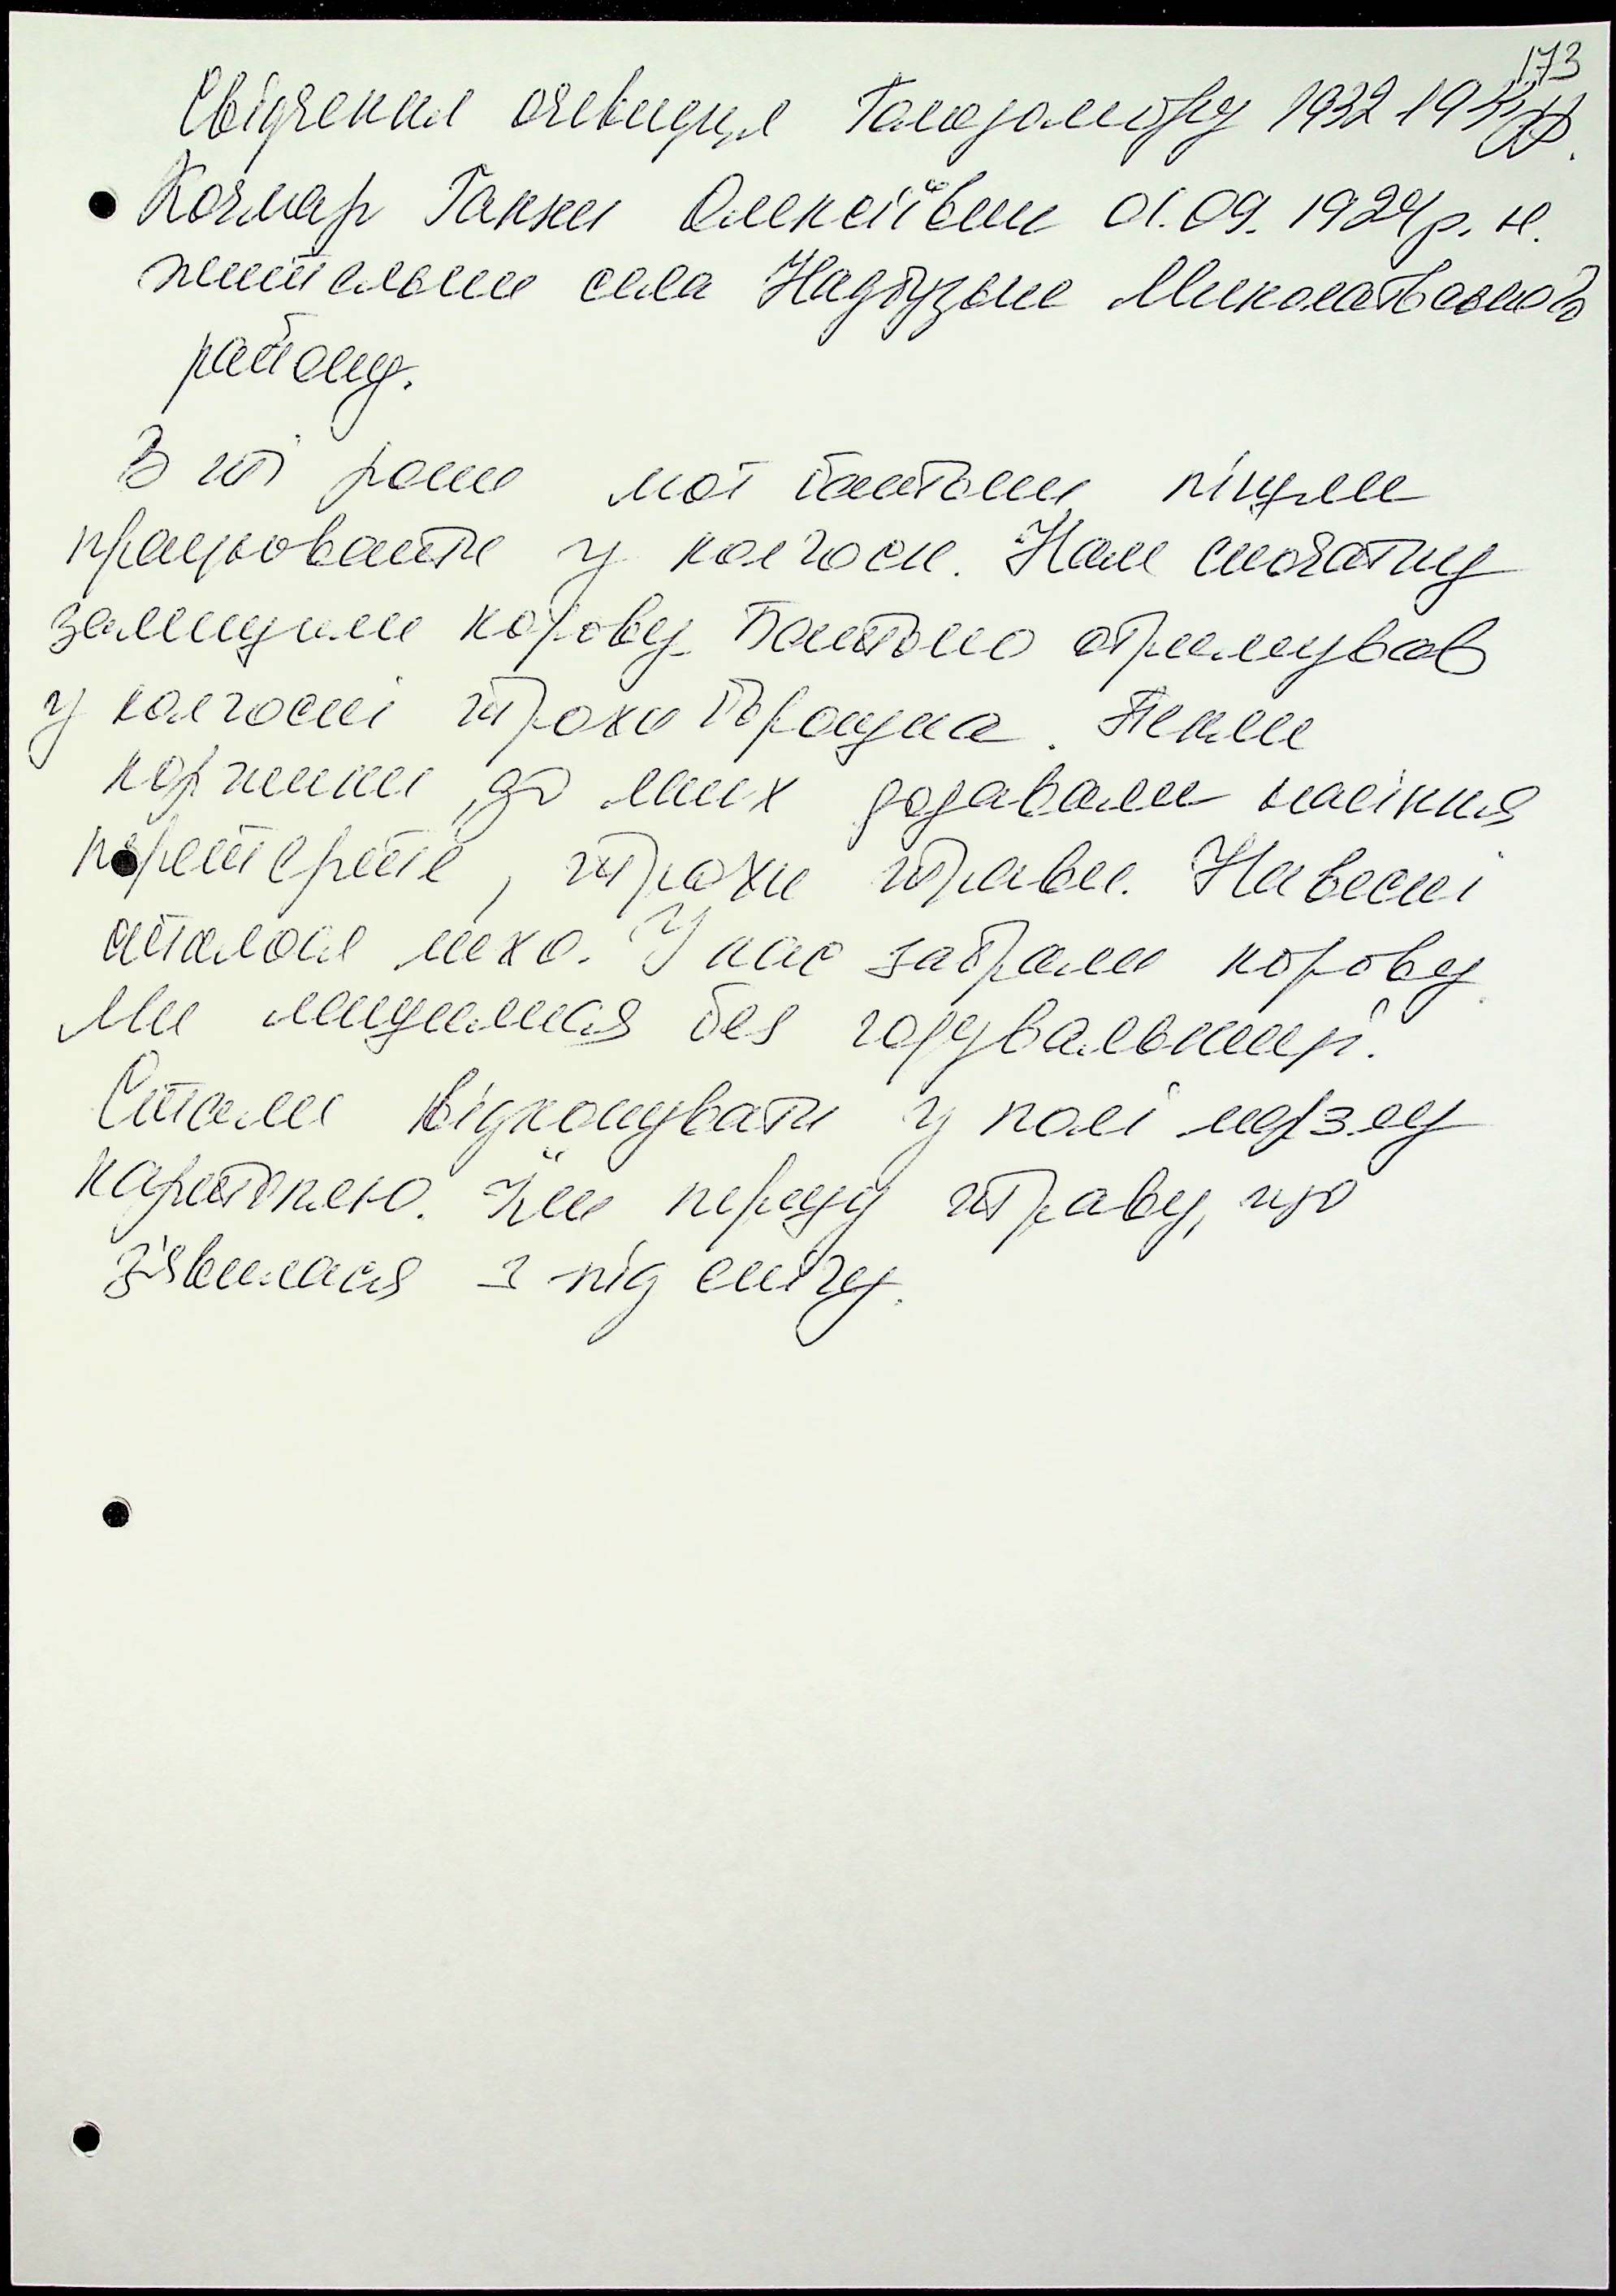 173
Свідчення очевидця Голодомору 1932 1933рр.
Кочмар Ганни Олексіївни 01.09.1924р. н.
жительки села Надбузьке Миколаївського
району.
В ті роки мої батьки пішли
працювати у колгосп. Нам спочатку
залишили корову. Батько отримував
у колгоспі трохи борошна. Пекли
коржики, до них додавали насіння
перетерте, трохи трави. Навесні
сталося лихо. У нас забрали корову.
Ми лишилися без годувальниці.
Стали відкопувати у полі мерзлу
картоплю. Їли першу траву, що
з'явилася з під снігу.